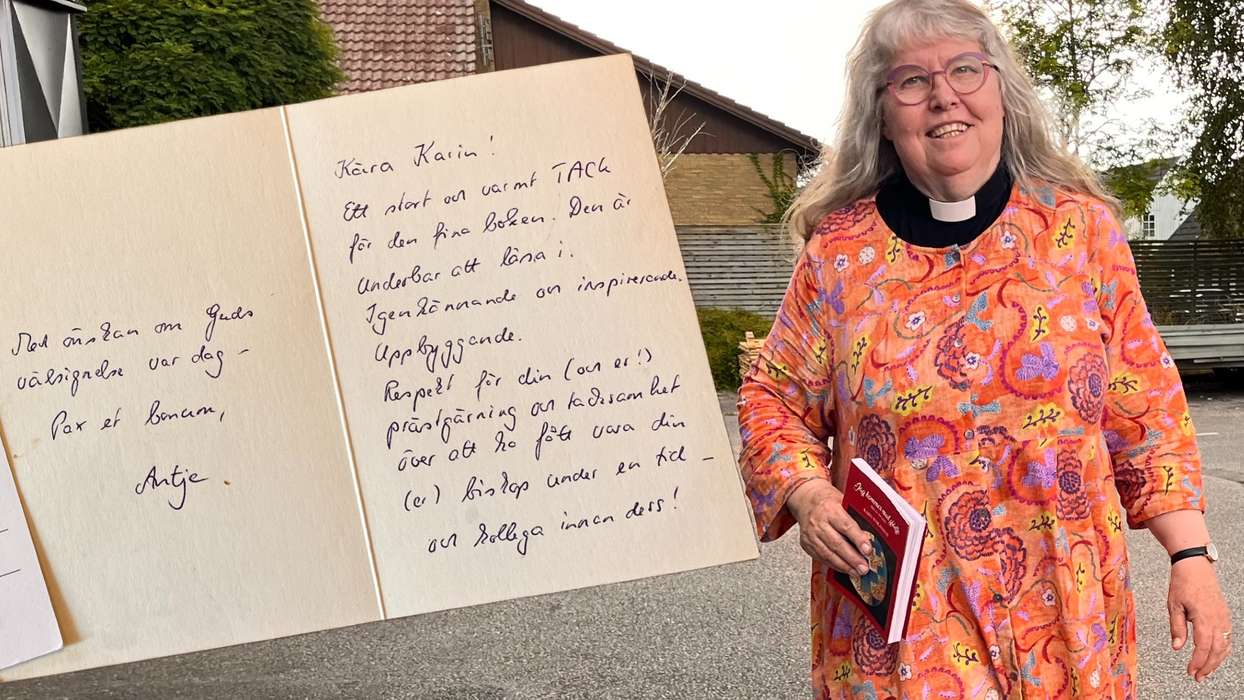 Med önskan om Guds
välsignelse var dag –
Pax et bonum,
Antje.
Kära Karin!
Ett stort och varmt TACK
för den fina boken. Den är
underbar att läsa i.
Igenkännande och inspirerande.
Uppbyggande.
Respekt för din (och er!)
prästgärning och tacksamhet
över att ha fått vara din
(er) biskop under en tid –
och kollega innan dess!
Jag kommer med